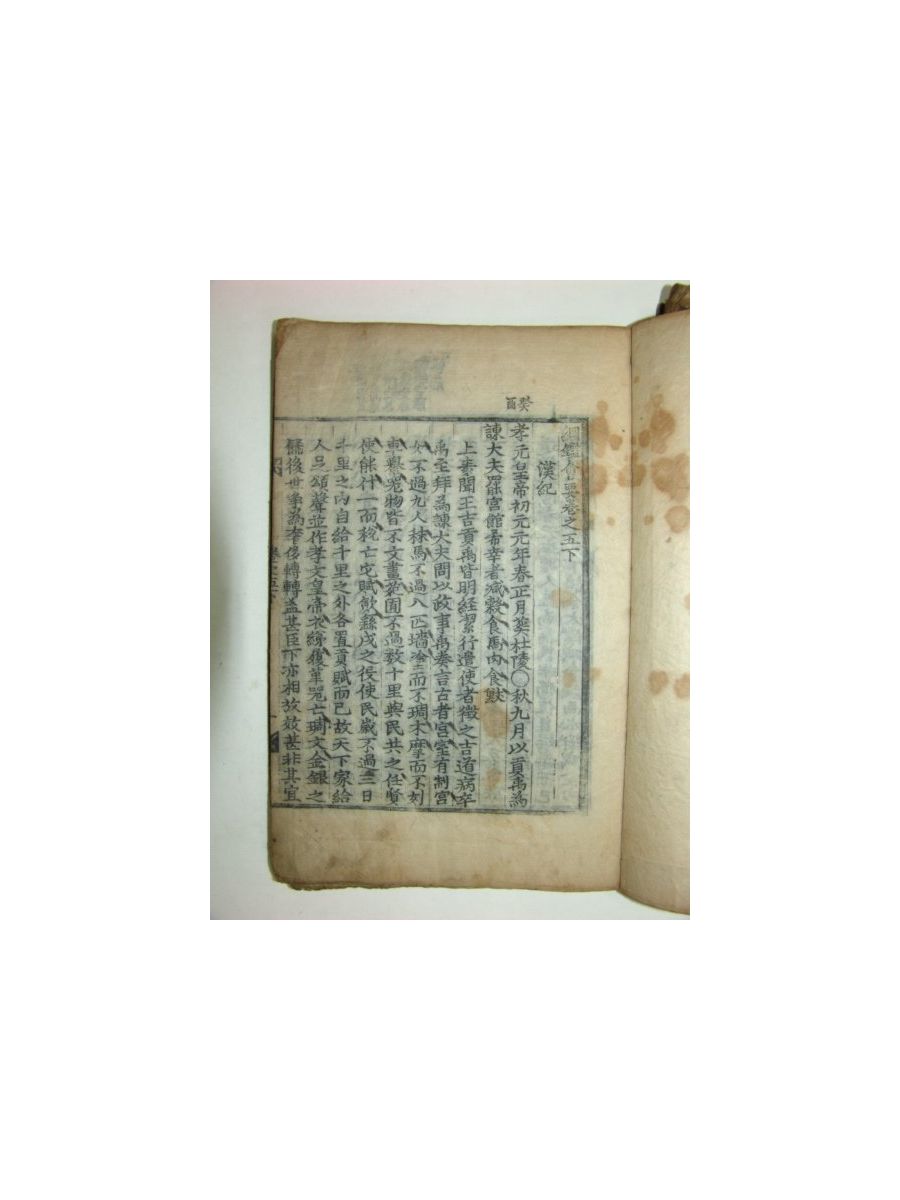 綱鑑會要卷之五下
漢紀
癸酉
孝元皇帝初元元年春正月葬杜陵○秋九月以貢禹為
諫大夫罷宮館希幸者减穀食馬肉食獸
上素聞王吉貢禹皆明經潔行遣使者徵之吉道病卒
禹至拜為諫大夫問以政事禹奏言古者宮室有制宮
女不過九人秣馬不過八匹墻塗而不琱木摩而不刻
車輿器物皆不文畫苑囿不過数十里與民共之任賢
使能什一而稅亡它賦歛繇戍之役使民歲不過三日
千里之內自給千里之外各置貢賦而已故天下家給
人足頌聲並作孝文皇帝衣綈履革器亡琱文金銀之
餙後世爭為奢侈轉轉益甚臣下亦相放效甚非其宜